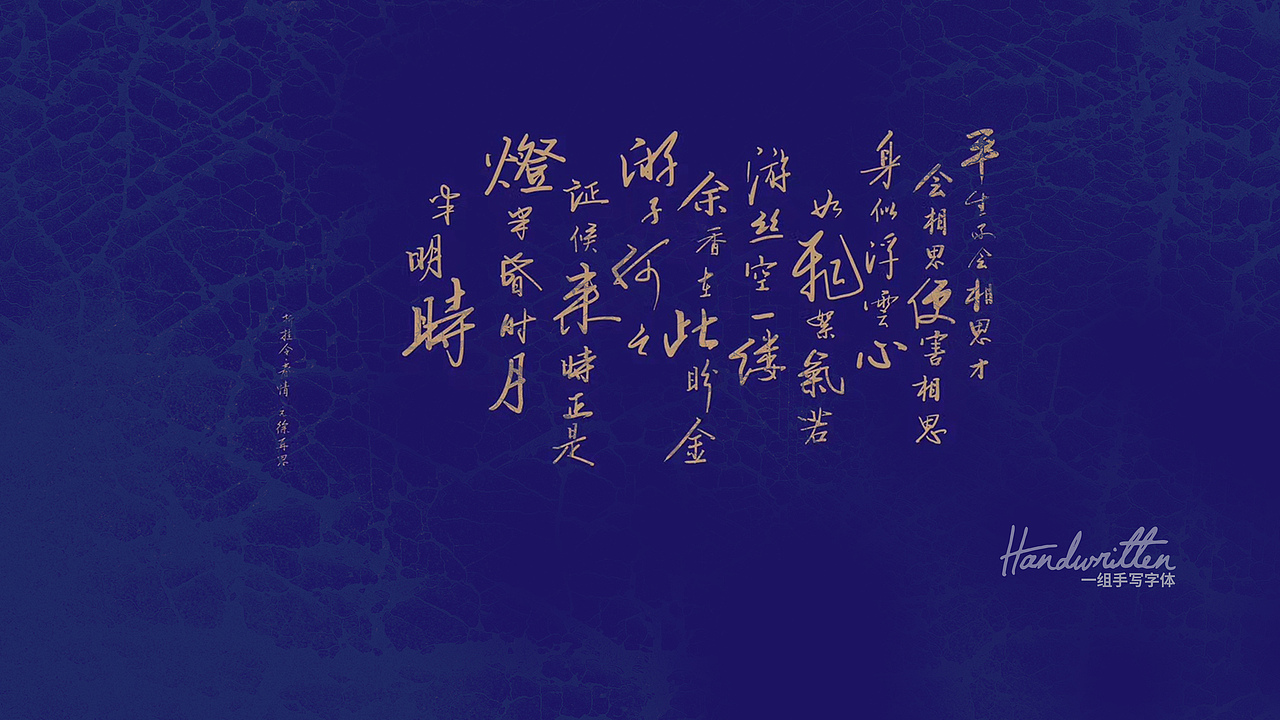 平生不会相思才
会相思便害相思
身似浮雲心
如飛絮氣若
游丝空一缕
余香在此盼金
游子何之
证候来時正是
燈半昏时月
半明時
折桂令 春情 元 徐再思
Handwritten
一组手写字体